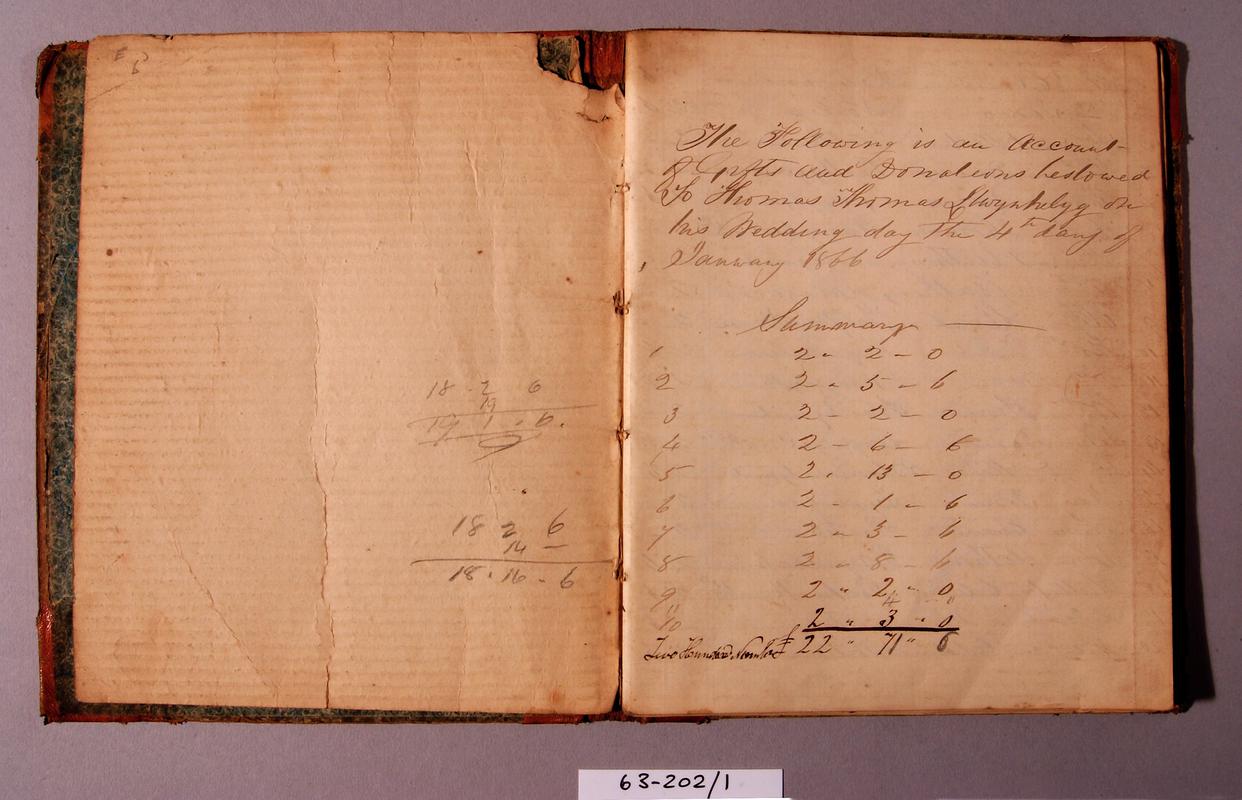 18 - 2 6
19
19 1 - 6.
18 2 6
14 -
18 . 16 - 6
The Following is an Account
of Gifts and Donations bestowed
To Thomas Thomas Llwynhelyg on
his Wedding day the 4th day of
January 1866
Summary
1 2 - 2 - 0
2 2 - 5 - 6
3 2 - 2 - 0
4 2 - 6 - 6
5 2 . 13 - 0
6 2 - 1 - 6
7 2 - 3 - 6
8 2 - 8 - 6
9 2 " 2 " 0
10 2 " 3 " 0
Two Hundred £ 22 " 71 " 6
63-202/1